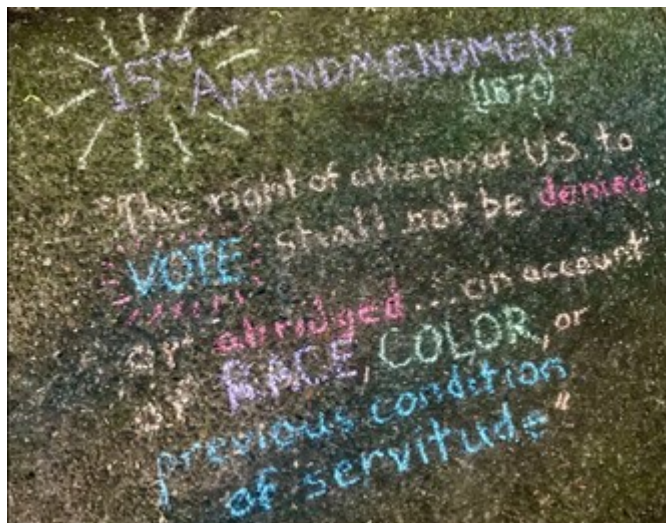 15TH AMENDMENDMENT
(1870)
"The right of citizens of U.S. to
VOTE shall not be denied
or abridged...on account
of RACE, COLOR, or
previous condition
of servitude"